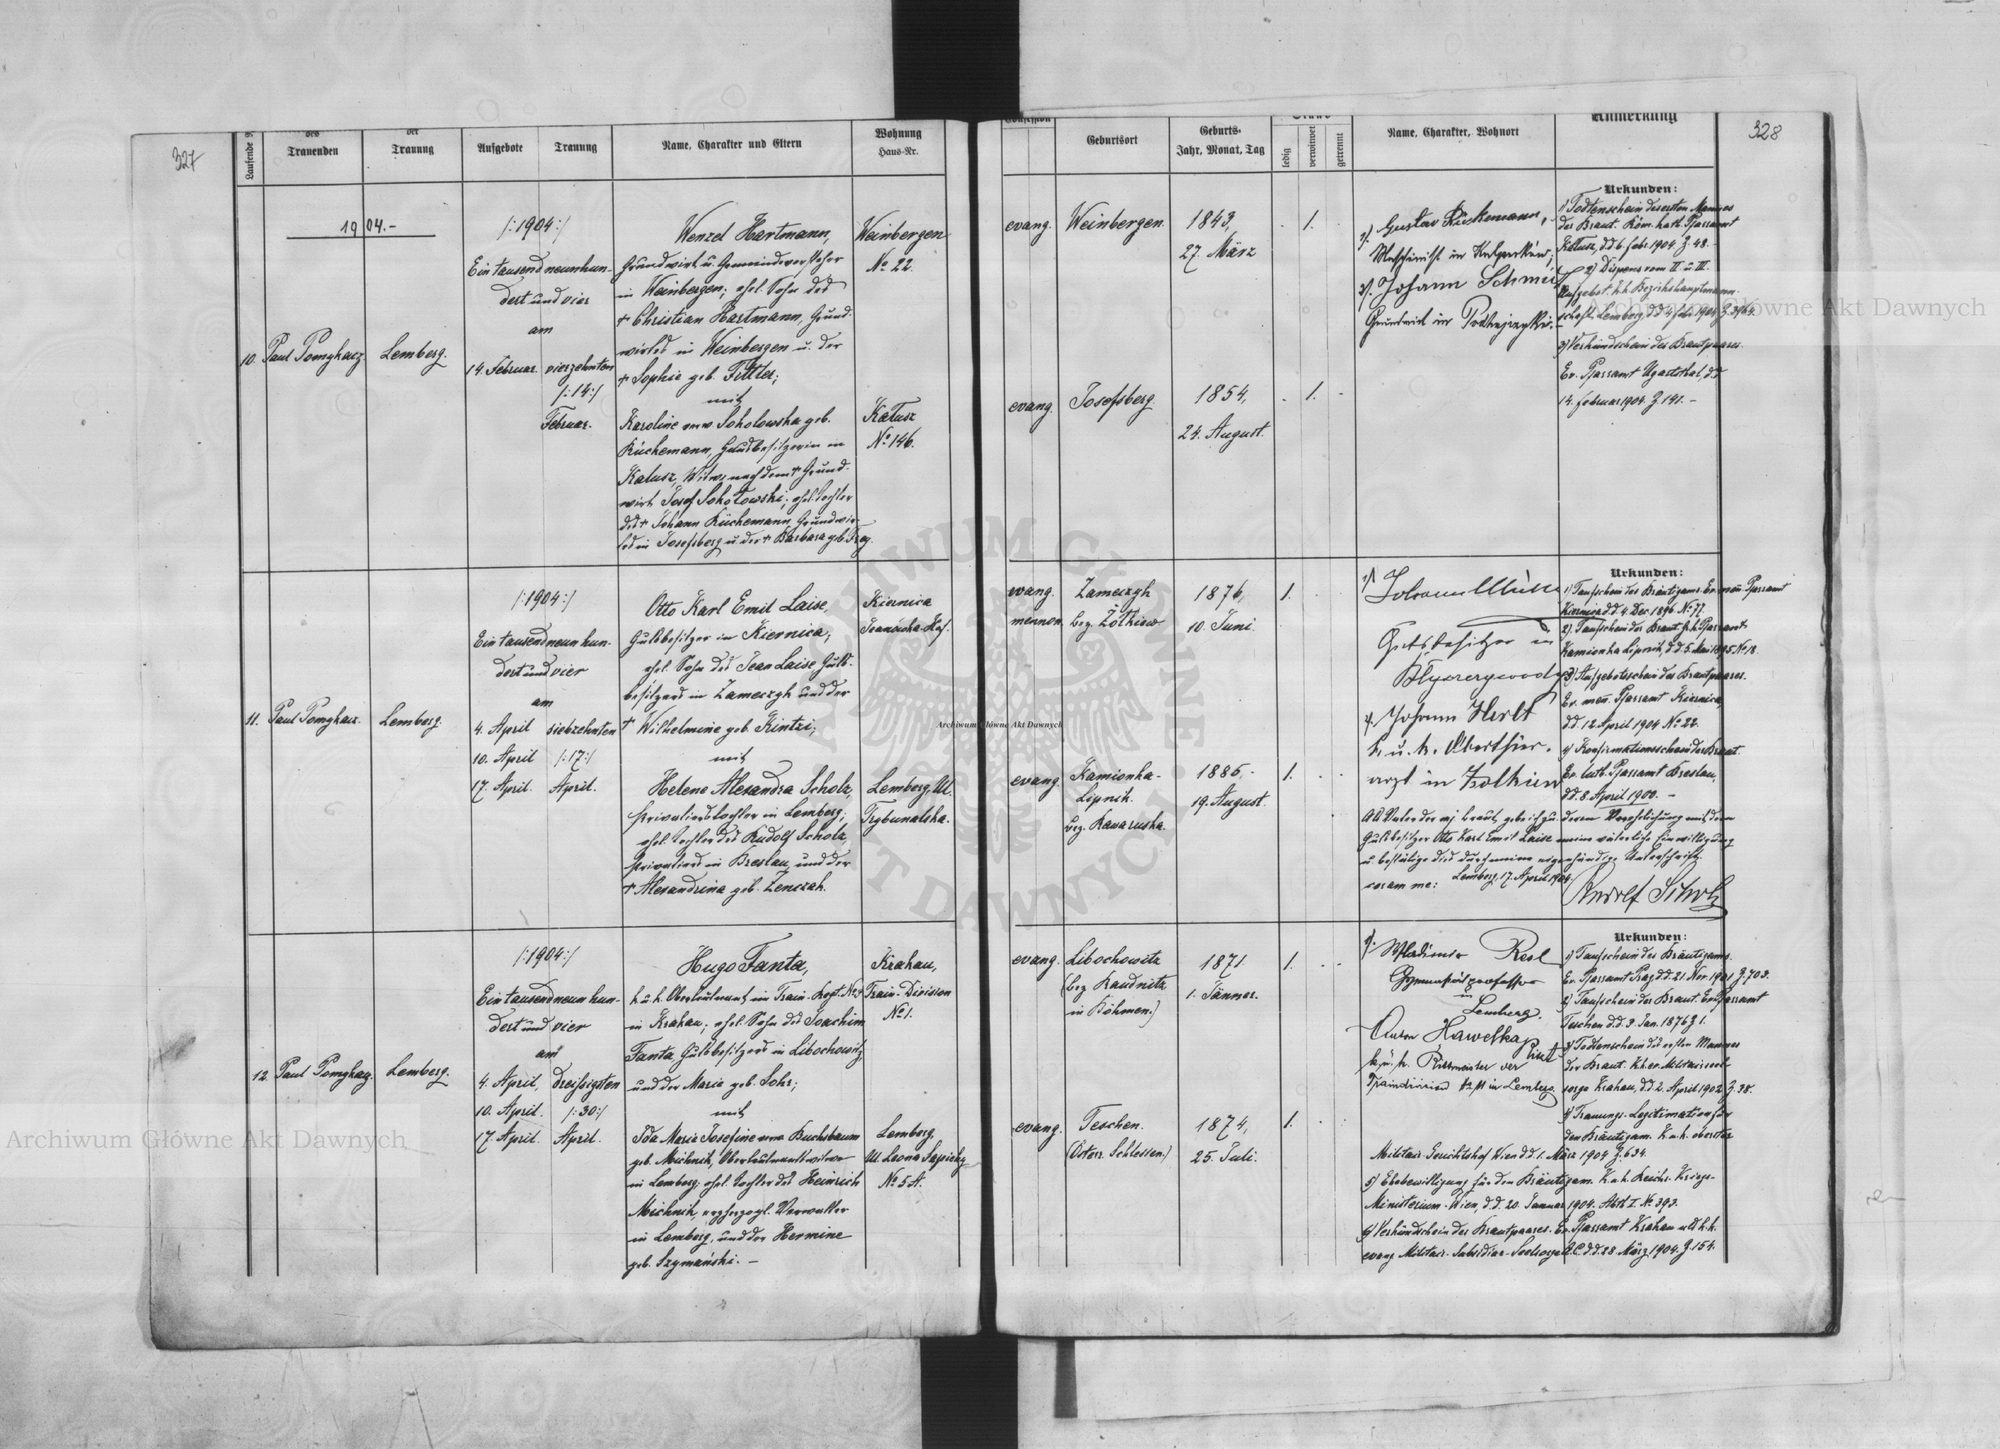 327
Laufende
des Trauenden
der Trauung
Aufgebote
Trauung
Name, Charakter und Eltern
Wohnung
Haus-Nr.
1904.-
10.
Paul Pomykacz
Lemberg.
/:1904:/
Ein tausend neunhun-
dert und vier
am
14. Februar. vierzehnten
/:14:/
Februar.
Wenzel Hartmann,
Grundwirt u. Gemeindevorsteher
in Weinbergen; ehel. Sohn des
+ Christian Hartmann, Grund-
wirtes in Weinbergen u. der
+ Sophie geb. Fittler;
mit
Karoline verw. Sokolowska geb.
Küchemann, Grundbesitzerin in
Kalusz, Witwe nach dem + Grund-
wirt Josef Sokołowski; ehel. Tochter
des + Johann Küchemann, Grundwir-
tes in Josefsberg u. der + Barbara geb.
Weinbergen
No 22.
Kałusz
No 146.
11.
Paul Pomykacz.
Lemberg.
/:1904:/
Ein tausend neun hun-
dert und vier
am
4. April siebzehnten
10. April /:17:/
17. April. April.
Otto Karl Emil Laise,
Gutsbesitzer in Kiernica,
ehel. Sohn des Jean Laise Guts-
besitzers in Zameczgh und der
+ Wilhelmine geb. Kintzi;
mit
Helene Alexandra Scholz,
Privatierstochter in Lemberg;
ehel. Tochter des Rudolf Scholz,
Privatiers in Breslau und der
+ Alexandrina geb. Zenczak.
Kiernica
Lemberg, Ul.
Trybunalska.
12.
Paul Pomykacz.
Lemberg.
/:1904:/
Ein tausend neun hun-
dert und vier
am
4. April, dreißigsten
10. April. /:30:/
17. April. April.
Hugo Fanta,
k. u. k. Oberleutnant im Train-Regt. No 3
in Krakau; ehel. Sohn des Joachim
Fanta Gutsbesitzers in Libochowitz
und der Marie geb. Sohr;
mit
Ida Marie Josefine verw. Buchsbaum
geb. Michnik, Oberleutnantswitwe
in Lemberg; ehel. Tochter des Heinrich
Michnik, erzherzogl. Verwalter
in Lemberg, und der Hermine
geb. Szymański. —
Krakau,
Train-Division
No 1.
Lemberg,
Ul. Leona Sapiehy
No 5 A.
328
Confession
Geburtsort
Geburts-
Jahr, Monat, Tag
Stand
ledig
verwitwet
getrennt
Name, Charakter, Wohnort
Anmerkung
evang.
Weinbergen.
1843,
27. März
. 1. .
evang.
Josefsberg.
1854,
24. August.
. 1. -
1). Gustav Küchemann,
2). Johann Schmidt
Grundwirt in
Urkunden:
1) Todtenschein des ersten Mannes
der Braut. Röm. kath. Pfarramt
Kałusz, d.d. 6. febr. 1904 Z. 48. -
2) Dispens vom II. u. III.
Aufgebot. k.k. Bezirkshauptmann-
schaft Lemberg d.d. 4. febr. 1904 Z. 3964.
3) Verkündschein des Brautpaares.
Ev. Pfarramt Ugartsthal, d.d.
14. Februar 1904. Z. 141. -
evang.
mennon.
Zameczgh
bez. Żółkiew
1876,
10. Juni.
1. . .
evang.
Kamionka-
Lipnik.
bez. Rawaruska.
1885,-
19. August.
1. . .
1)
Gutsbesitzer in
2. Johann Herlt
k. u. k. Oberthier-
arzt in Zolkiew
Urkunden:
1) Taufschein des Bräutigams. Ev. men. Pfarramt
Kiernica d.d. 4. Dec. 1896 No 77.
2) Taufschein der Braut. r. k. Pfarramt
Kamionka Lipnik, d.d. 5. Mai 1895 No 18.
3) Aufgebotsschein des Brautpaares.
Ev. men. Pfarramt Kiernica
d.d. 12 April 1904 No 22.
4) Konfirmationsschein der Braut.
Ev. luth. Pfarramt Breslau,
d.d. 8. April 1900. -
Als Vater der mj. Braut, gebe ich zu deren Verehelichung mit dem
Gutsbesitzer Otto Karl Emil Laise meine väterliche Einwilligung
u. bestätige dies durch meine eigenhändige Unterschrift.
coram me: Lemberg, 17. April 1904.
Rudolf Scholz
evang.
Libochowitz
(bez. Raudnitz
in Böhmen.)
1871.
1. Jänner.
1. . .
evang.
Teschen.
(Österr. Schlesien.)
1874,
25. Juli.
1. . .
1). Wladimir Resl
Gymnasialprofessor
in
Lemberg.
Anton Hawelka
k. u. k. Rittmeister der
Traindivision No 11 in Lemberg
Urkunden:
1) Taufschein des Bräutigams.
Ev. Pfarramt Prag d.d. 21. Nov. 1901 Z. 703.
2) Taufschein der Braut. Ev. Pfarramt
Teschen d.d. 3. Jan. 1876 Z 1.
3) Todtenschein des ersten Mannes
der Braut. K.k. ev. Militärseel-
sorge Krakau, d.d. 2. April 1902. Z. 38.
4) Trauungs-Legitimation für
den Bräutigam. K. u. k. oberster
Militär-Gerichtshof Wien d.d. 1. März 1904 Z. 634.
5) Ehebewilligung für den Bräutigam. K. u. k. Reichs-Kriegs-
Ministerium-Wien, d.d. 20. Januar 1904. Abth. I. No 393.
6) Verkündschein des Brautpaares. Ev. Pfarramt Krakau als k.k.
evang. Militär-Subsidiar-Seelsorge A.C. d.d. 28. März 1904. Z. 154.
Archiwum Główne Akt Dawnych
Archiwum Główne Akt Dawnych
Archiwum Główne Akt Dawnych
ARCHIWUM GŁÓWNE AKT DAWNYCH